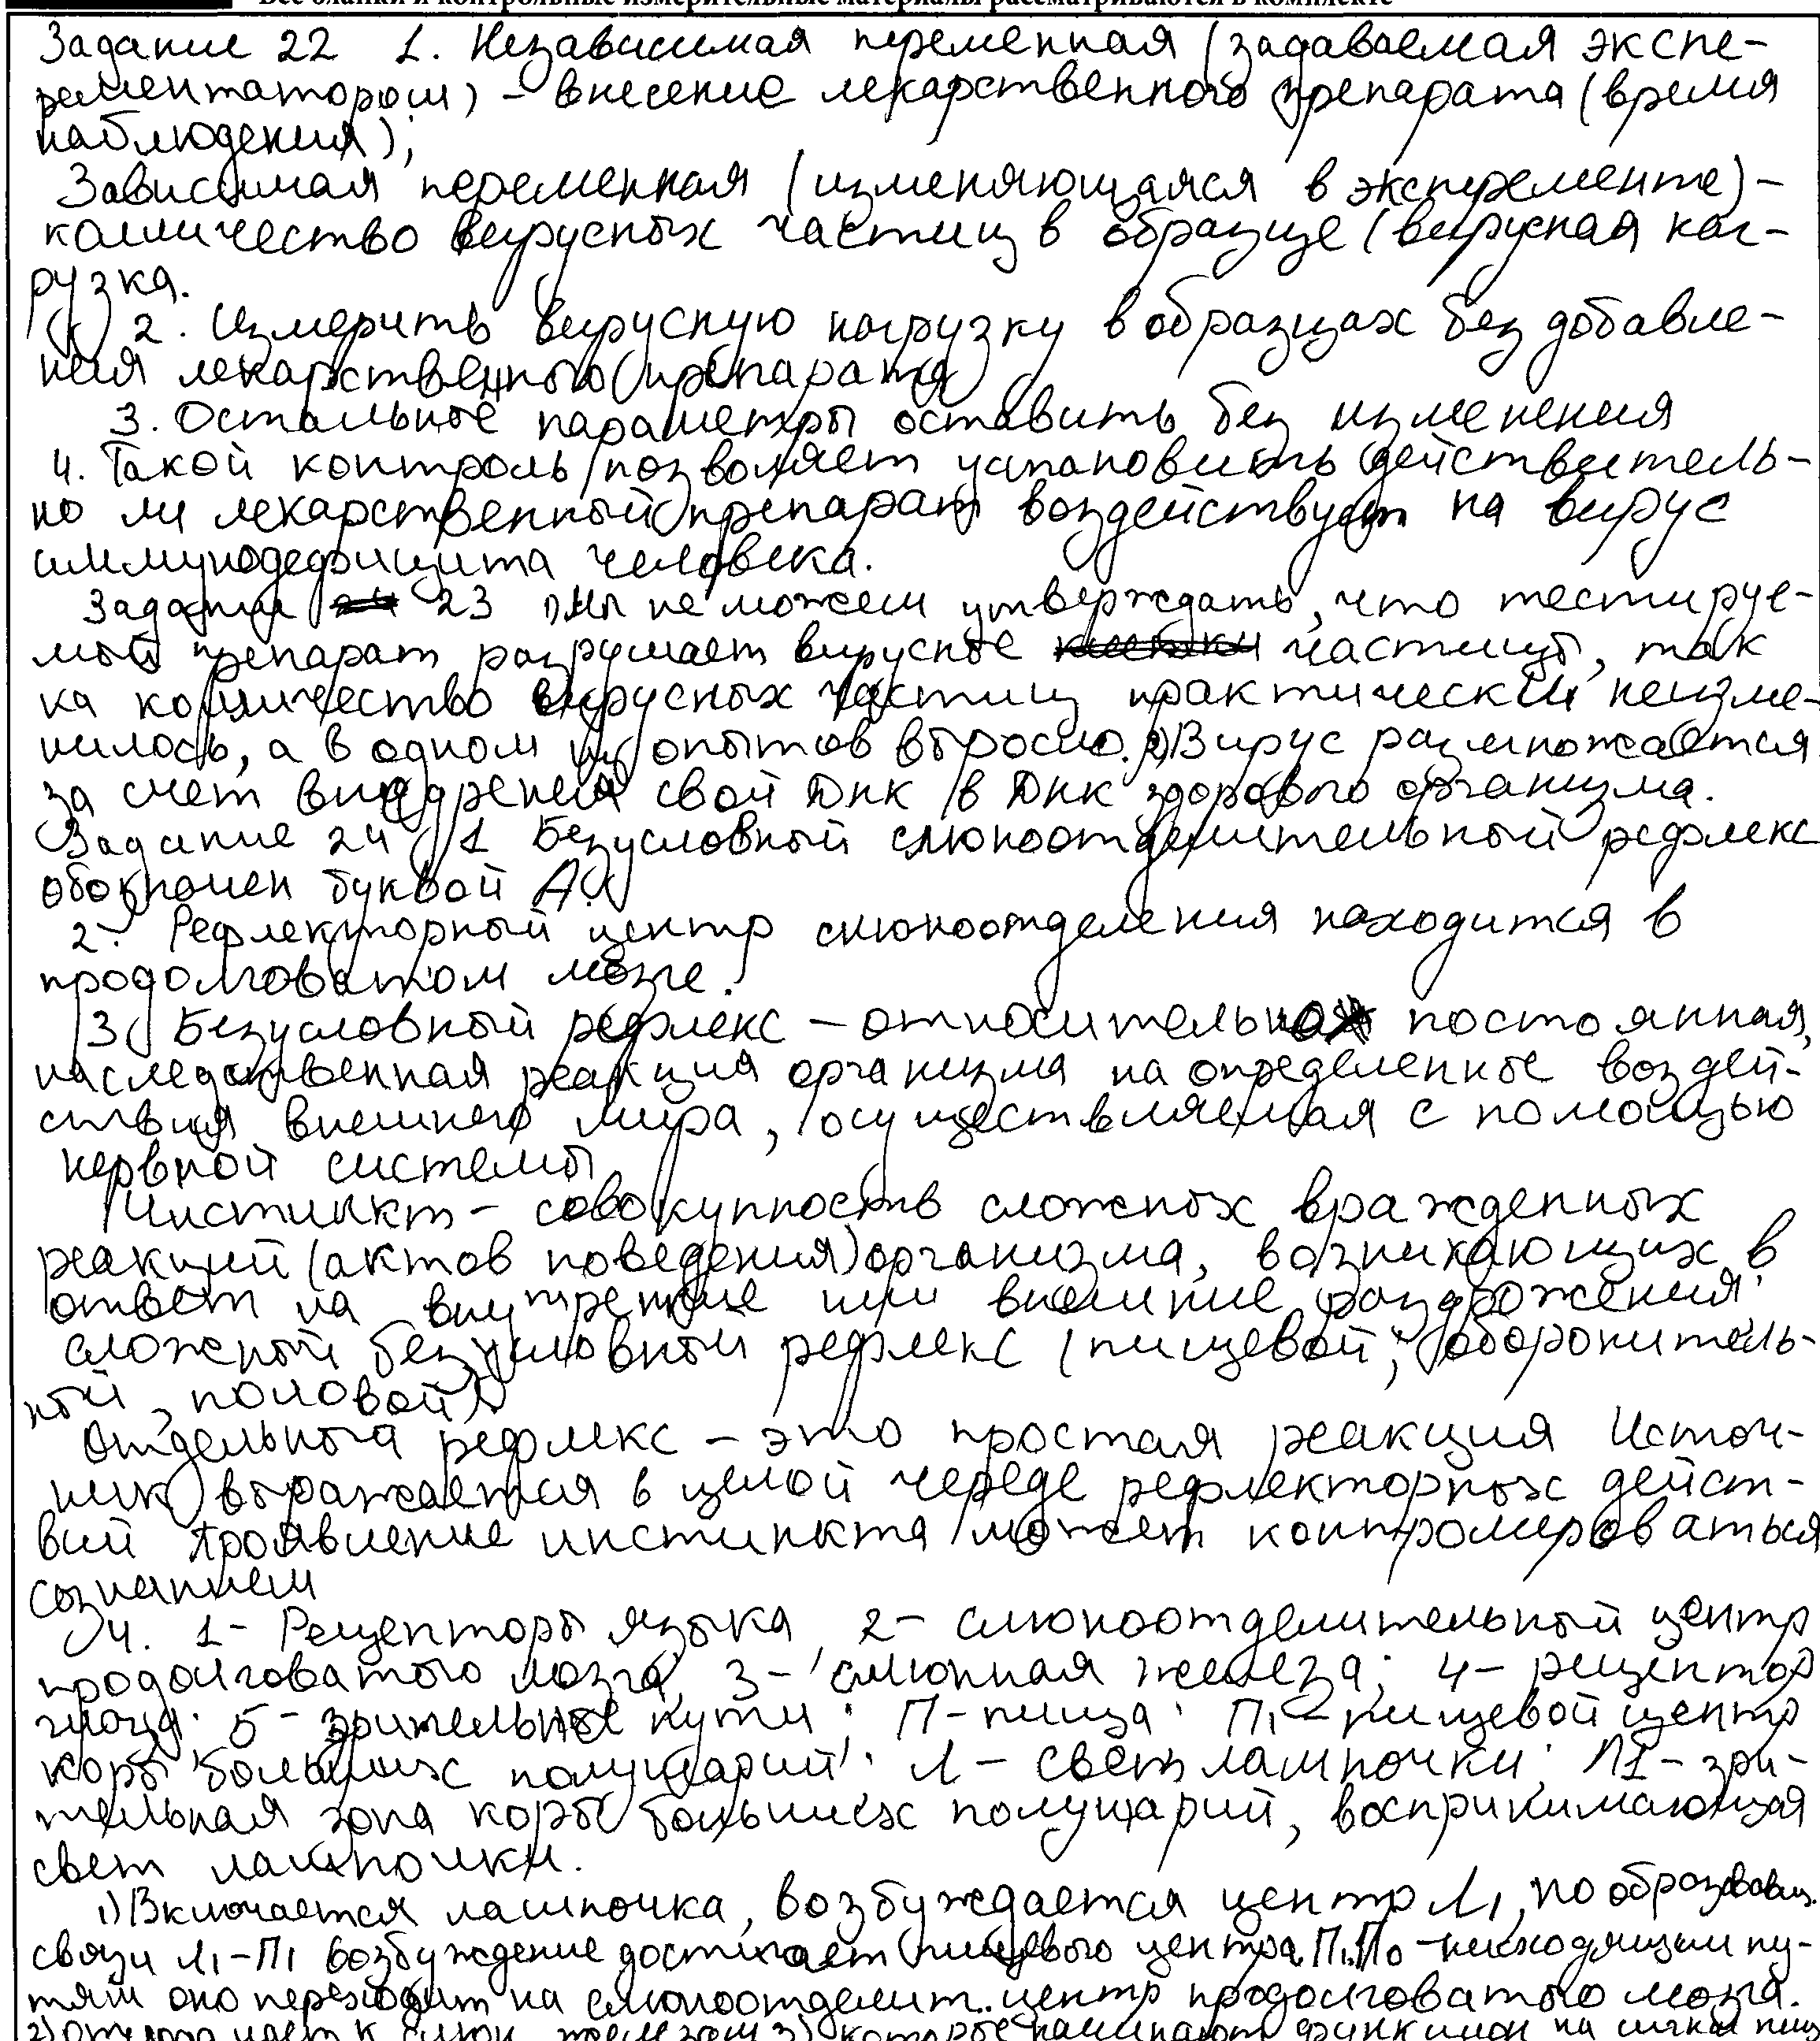 Все бланки и контрольные измерительные материалы рассматриваются в комплекте
Задание 22 1. Независимая переменная (задаваемая экспе-
рементатором) - внесение лекарственного препарата (время
наблюдения);
Зависимая переменная (изменяющаяся в эксперементе) -
колличество вирусных частиц в образце (вирусная наг-
рузка.
2. Измерить вирусную нагрузку в образцах без добавле-
ния лекарственного препарата
3. Остальные параметры оставить без изменения
4. Такой контроль позволяет установить действитель-
но ли лекарственный препарат воздействует на вирус
иммунодефицита человека.
Задание 23 1) Мы не можем утверждать, что тестируе-
мый препарат разрушает вирусные частицы, так
ка количество вирусных частиц практически неизме-
нилось, а в одном из опытов выросло. 2) Вирус размножается
за счет внедрения свой ДНК в ДНК здорового организма.
Задание 24 1 Безусловный слюноотделительный рефлекс
обозначен буквой А.
2. Рефлекторный центр слюноотделения находится в
продолговатом мозге.
3 Безусловный рефлекс - относительно постоянная,
наследственная реакция организма на определенное воздей-
ствия внешнего мира, осуществляемая с помощью
нервной системы
Инстинкт - совокупность сложных врожденных
реакций (актов поведения) организма, возникающих в
ответ на внутренние или внешние раздрожения;
сложный безусловный рефлекс (пищевой, оборонитель-
ный, половой)
Отдельный рефлекс - это простая реакция Источ-
ник выражается в целой череде рефлекторных дейст-
вий проявление инстинкта может контролироваться
сознанием
4. 1- Рецепторы языка, 2- слюноотделительный центр
продолговатого мозга, 3- слюнная железа; 4- рецептор
глаза; 5- зрительные пути; П-пища; П1-пищевой центр
коры больших полушарий; Л- свет лампочки; Л1- зри-
тельная зона коры больших полушарий, воспринимающая
свет лампочки.
1) Включается лампочка, возбуждается центр Л1, по образовавш.
связи Л1-П1 возбуждение достигает пищевого центра П1. По нисходящим пу-
тям оно переходит на слюноотделит. центр продолговатого мозга.
2) оттуда идет к слюн. железам 3) которые начинают